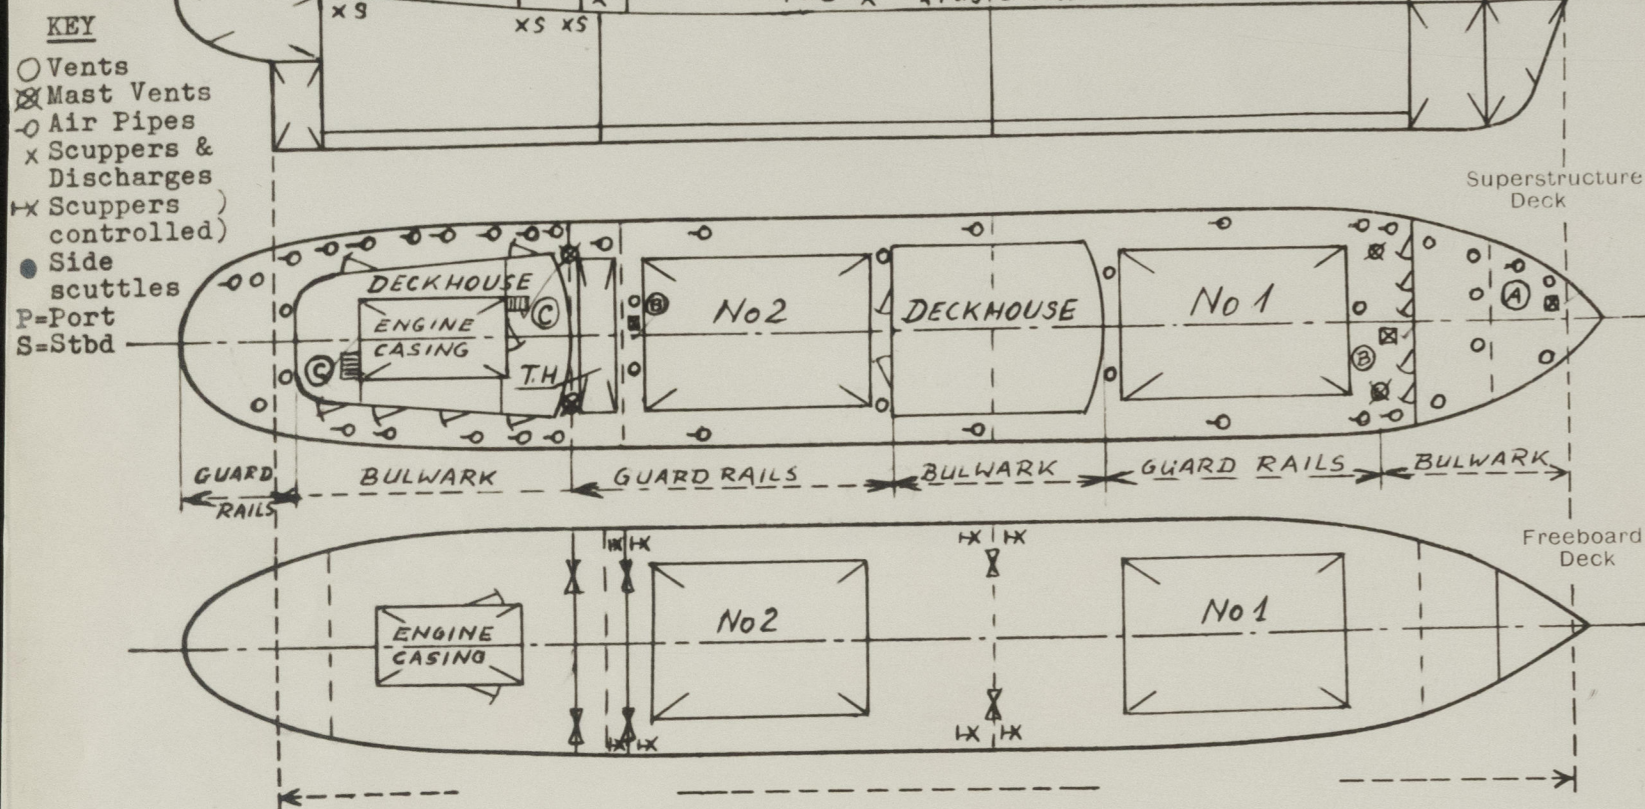 KEY
Vents
Mast Vents
Air Pipes
x Scuppers &
Discharges
Scuppers )
controlled)
Side
scuttles
P=Port
S=Stbd
x S
x S x S
Superstructure
Deck
DECKHOUSE
ENGINE
CASING
C
C
T.H
B
No 2
DECKHOUSE
No 1
B
A
GUARD
RAILS
BULWARK
GUARD RAILS
BULWARK
GUARD RAILS
BULWARK
Freeboard
Deck
ENGINE
CASING
No 2
No 1